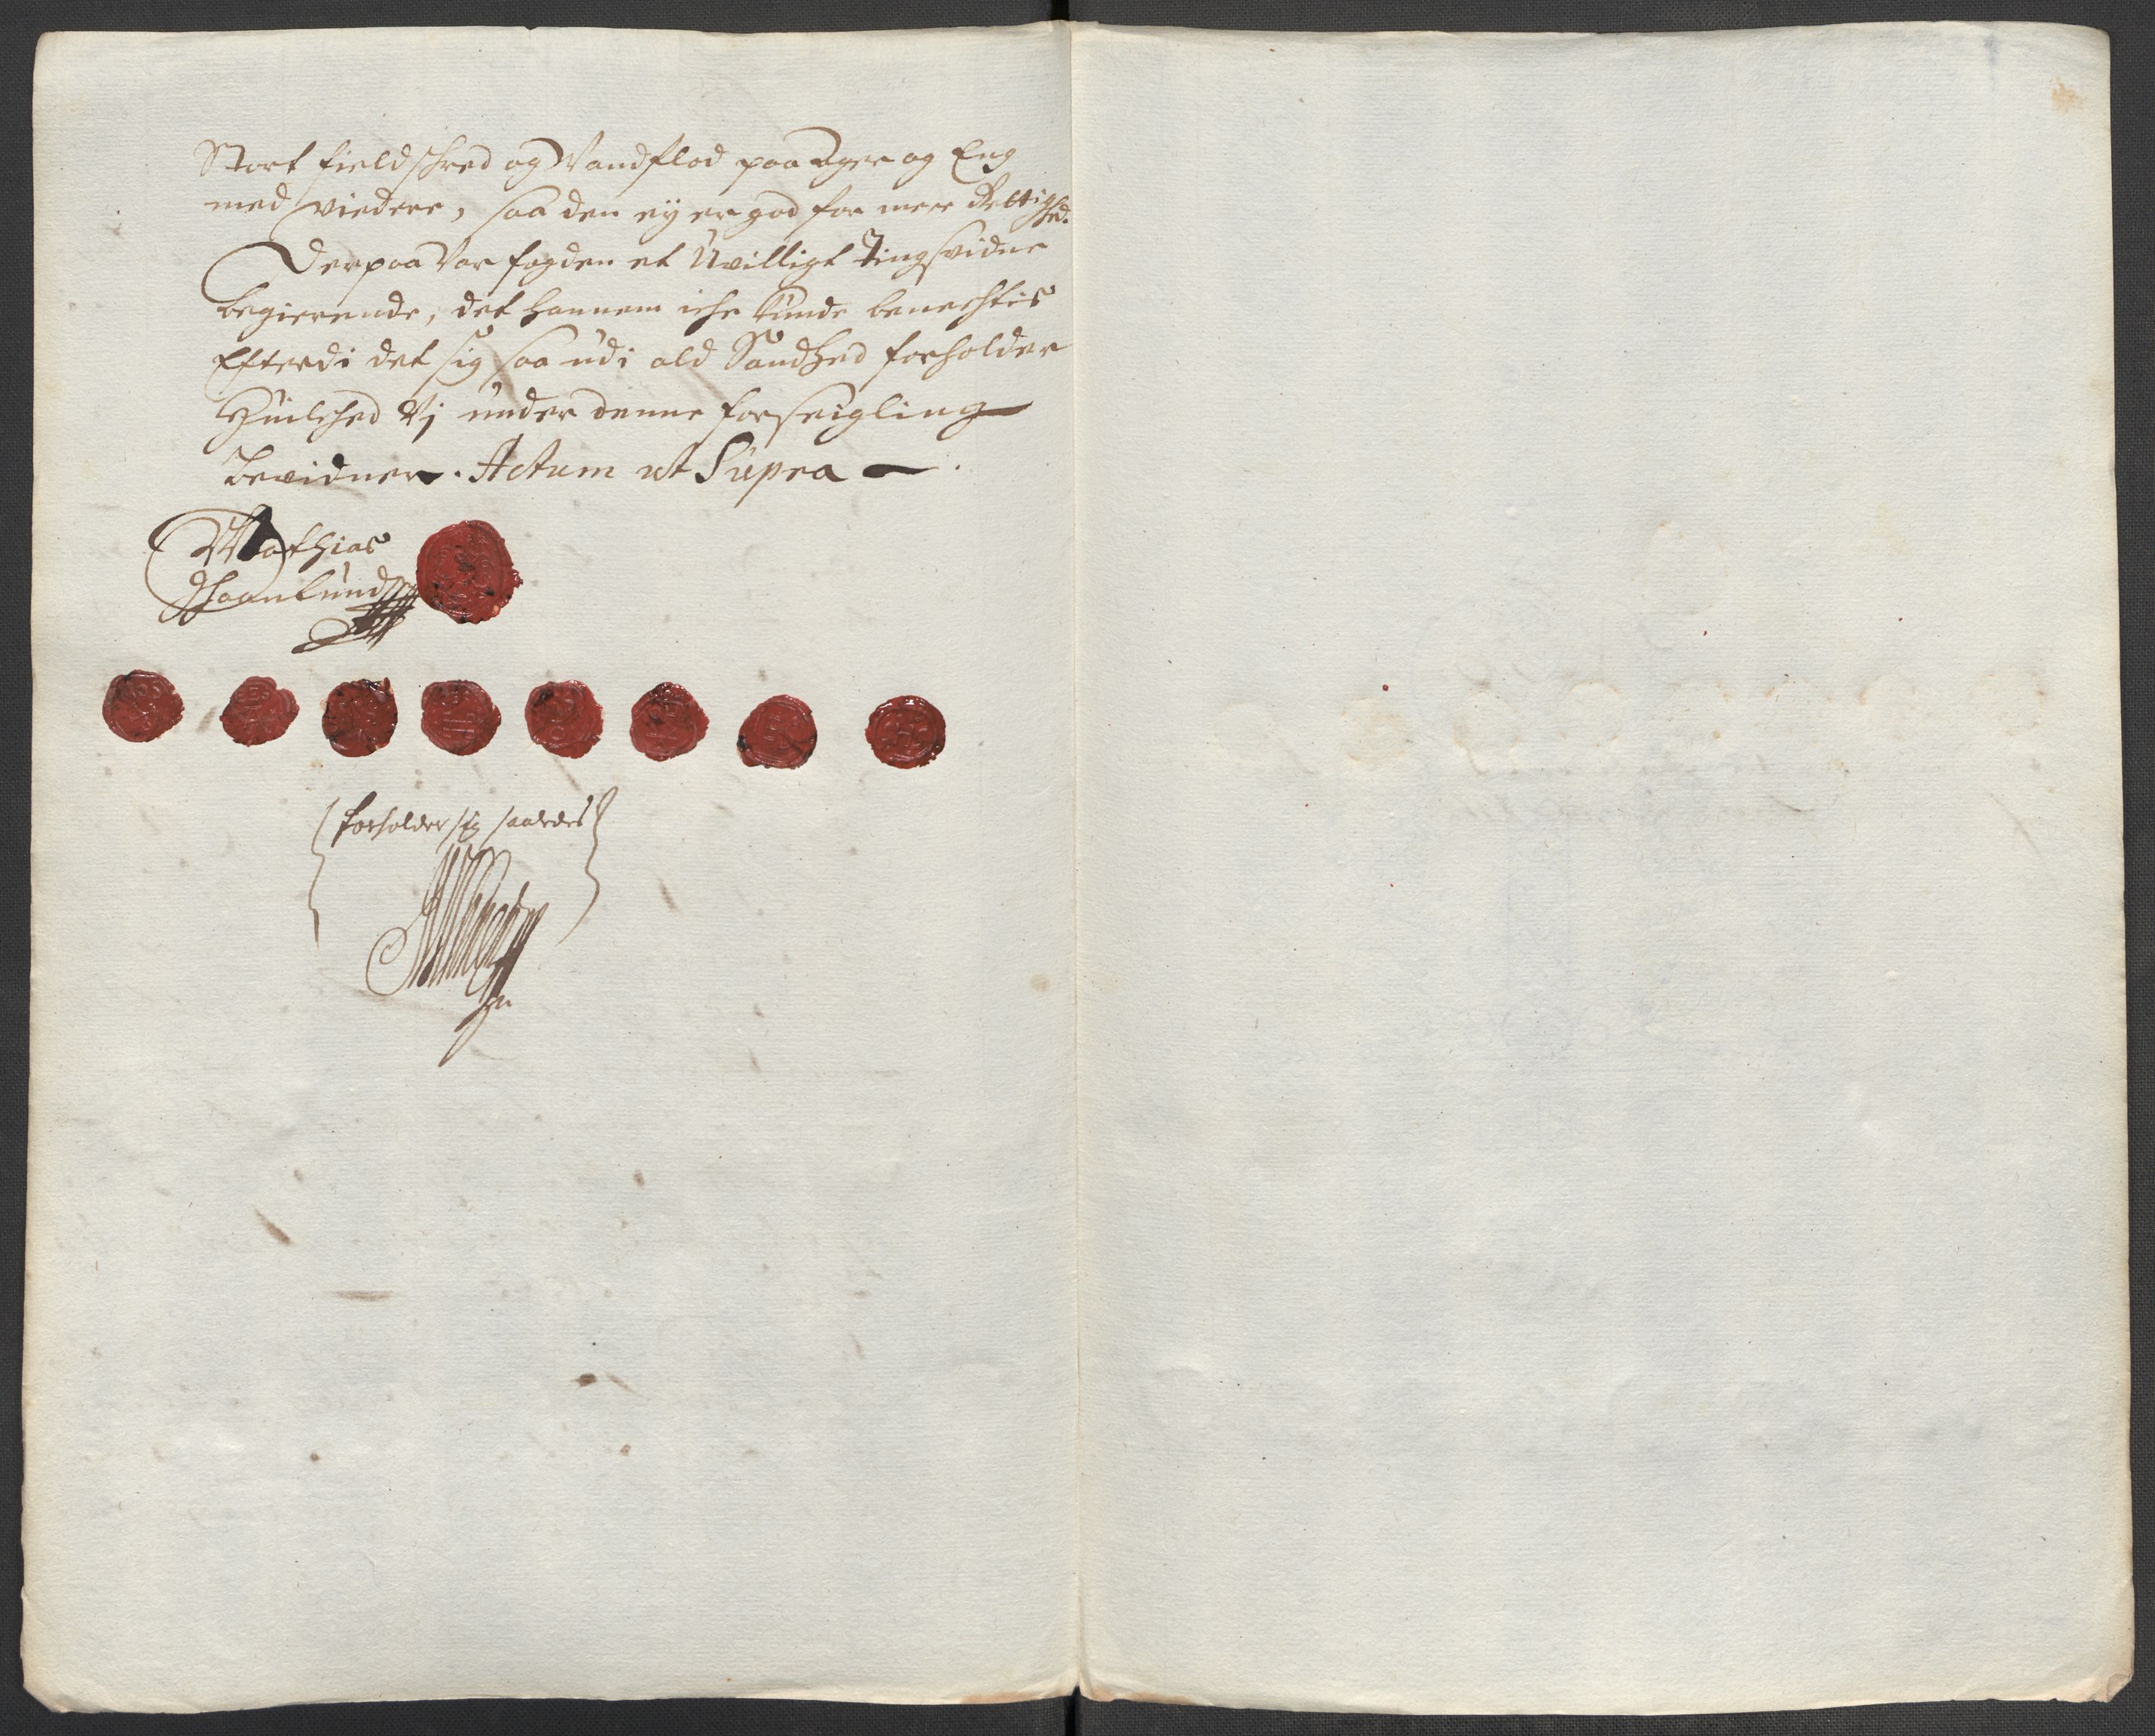 Stort fieldschred og Vandflod paa Ager og Eng
med viedere, saa den ey er god for mere Rettighed.
Derpaa Var fogden et Uvilligt Tingsvidne
begierende, det hannem iche kunde benechtis
Efterdi det sig saa udi ald Sandhed forholder
Huilched Vj under denne forseigling
bevidner. Actum ut Supra
Mathias
forholder sig saaledes